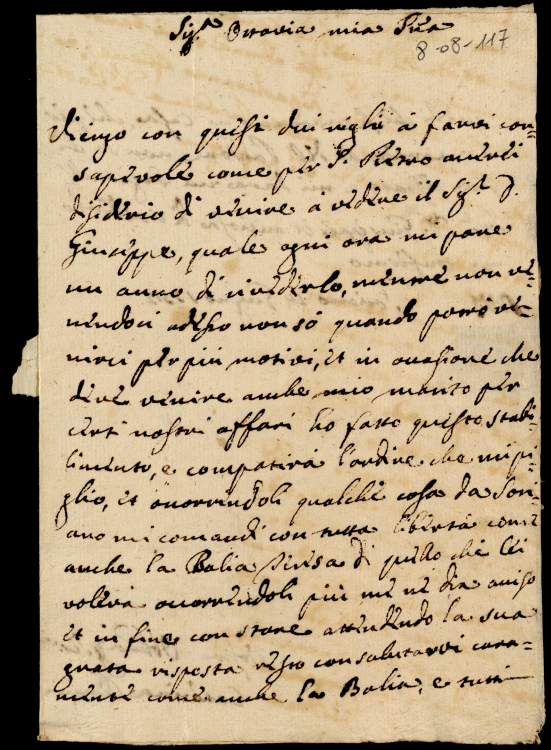 Sig.ra Ottavia mia Pna
8-08-117
Vengo con questi dui righi à farvi con-
sapevole come per S. Pietro averei
desiderio di venire à vedere il Sig.r D.
Giuseppe, quale ogni ora mi pare
un anno di rivederlo, mentre non ve-
nendoci adesso non sò quando potrò ve-
nirci per più motivi, et in occasione che
deve venire anche mio marito per
certi nostri affari hò fatto questo stabi-
limento, e compatirà l'ardire che mi pi-
glio, et ocorrindoli qualche cosa da Sori-
ano mi comandi con tutta libertà come
anche la Balia di quello che lei
voleva ocorrendoli più me ne dia aviso
et in fine con stare attendendo la sua
grata risposta resto con salutarvi cara-
mente come anche la Balia, e tutti